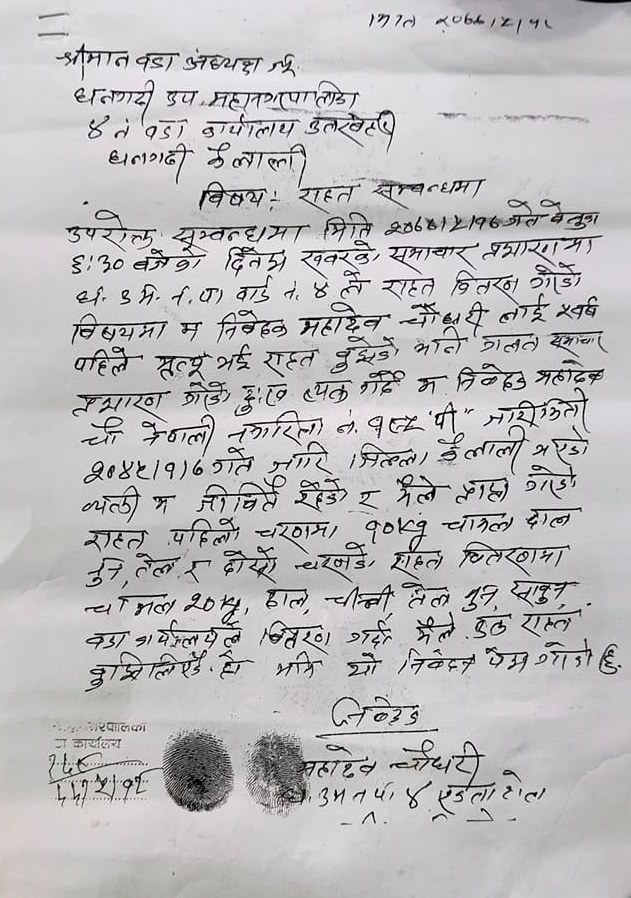 मिति २०७७/२/१८
श्रीमान वडा अध्यक्ष ज्यू
धनगढी उप महानगरपालिका
४ नं वडा कार्यालय उत्तरबेहडी
धनगढी कैलाली
विषय:- राहत सम्बन्धमा
उपरोक्त सम्बन्धमा मिति गते बेलुका
६:३० बजेको दिनेश खबरको समाचार प्रशारणमा
ध. उ. म. न. पा वार्ड नं. ४ ले राहत वितरण गरेको
विषयमा म निवेदक महादेव चौधरी लाई वर्ष
पहिले मृत्यू भई राहत बुझेको भनि गलत समाचार
प्रशारण गरेको दुःख व्यक्त गर्दै म निवेदक महादेव
चौ नेपाली नागरिता नं. "पी" जारी मिती
गते जारि जिल्ला कैलाली भएको
व्यक्ती म जीवितै रहेको र मैले प्राप्त गरेको
राहत पहिलो चरणमा १०kg चामल दाल
नुन, तेल र दोस्रो चरणको राहत वितरणमा
चामल २०kg, दाल, चीनी तेल नुन, साबुन,
वडा कार्यालयले वितरण गर्दा मैले राहत
बुझिलिएकै हो भनि यो निवेदन पेश गरेको छु.
निवेदक
महादेव चौधरी
ध. उ म न पा. ४ टोल
नगरपालिका
कार्यालय